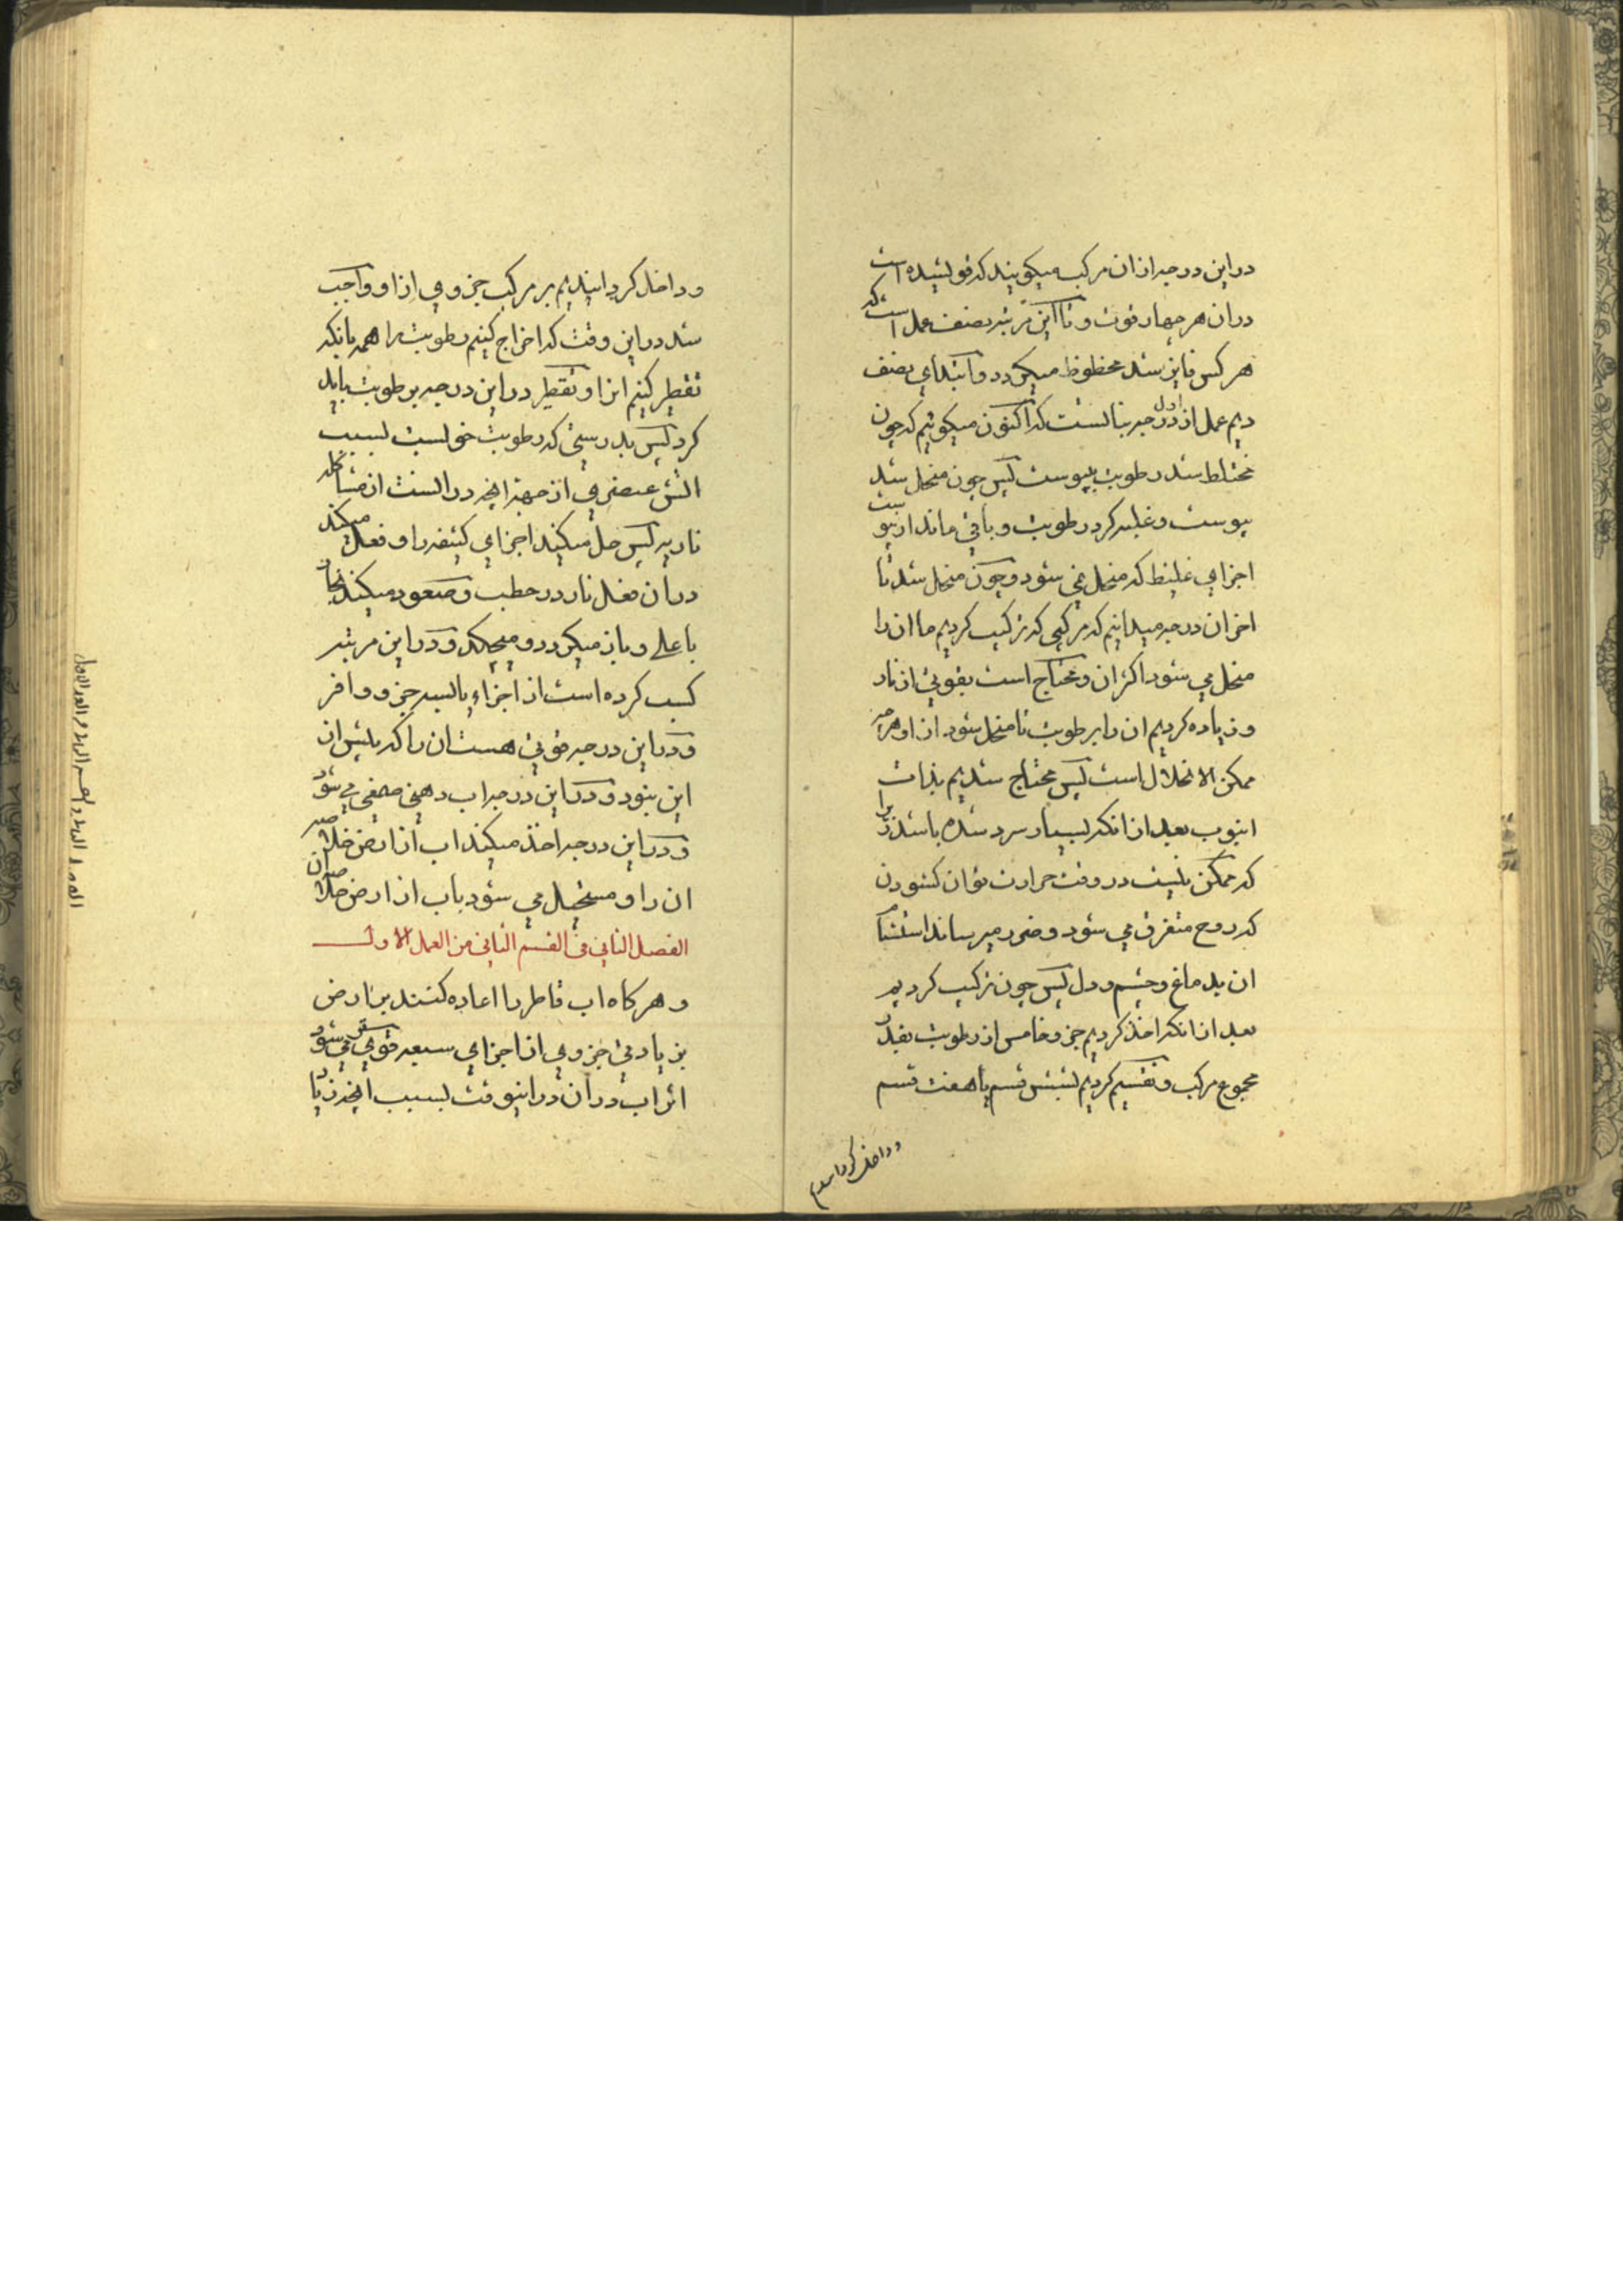 دراین درجه از ان مرکب میکویند که قوی شده است
دران هر چهار قوت و تا این مرتبه نصف عمل است که
هر کس فایز شد محظوظ میکردد و ابتدای نصف
دیم عمل از اول درجه ثالثست که اکنون میکوئیم که چون
مختلط شد رطوبت بیبوست پس چون منحل شد
یبوست و غلبه کرد رطوبت و باقی ماند از یبوست
اجزای غلیظ که منحل نمی شود و چون منحل شد تا
اخر ان درجه میدانیم که مرکبی که ترکیب کردیم ما ان را
منحل می شود اکثر ان و محتاج است بقوتی از نار
و زیاده کردیم ان را بر طوبت تا منحل شود از او هر چه
ممکن الانحلال است پس محتاج شدیم بذات
انبوب بعد از انکه بسیار سرد شده باشد زیرا
که ممکن نیست در وقت حرارت توان کشودن
که روح متفرق می شود و ضرر میرساند استشمام
ان بدماغ و چشم و دل پس چون ترکیب کردیم
بعد از انکه اخذ کردیم جزو خامس از رطوبت بقدر
مجموع مرکب و تقسیم کردیم بشش قسم یا هفت قسم
و داخل کردانیدیم
و داخل کردانیدیم بر مرکب جزوی از او و واجب
شد دراین وقت که اخراج کنیم رطوبت را همه بانکه
تقطیر کنیم انرا و تقطیر دراین درجه بر طوبت باید
کرد پس بدرستی که رطوبت خوبست بسبب
اتش عنصری از جهة انچه در اوست از مشاکله
ناریه پس حل میکند اجزای کثیفه را و فعل میکند
دران فعل نار در حطب و صعود میکند بخار
باعلی و باز میکردد و میچکد و دراین مرتبه
کسب کرده است از اجزاء یابسه جزو وافر
و دراین درجه قوتی هست ان را که پیش از
این نبود و دراین درجه اب دهنی مصفی می شود
و دراین درجه اخذ میکند اب از ارض خلاصه
ان را و مستحیل می شود باب از ارض خلاصه ان
الفصل الثانی فی القسم الثانی من العمل الاول
و هر کاه اب قاطر را اعاده کنند بر ارض
بزیادتی جزوی از اجزای سبعه قوی می شود
اثر اب دران در اینوقت بسبب انچه زیاد